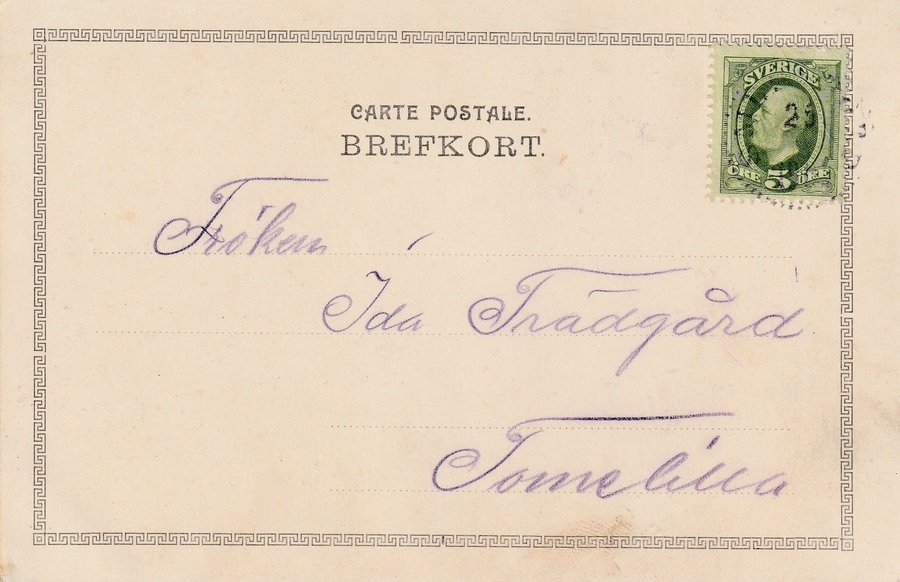 CARTE POSTALE.
BREFKORT.
SVERIGE
ÖRE 5 ÖRE
Fröken
Ida Trädgård
Tomelilla